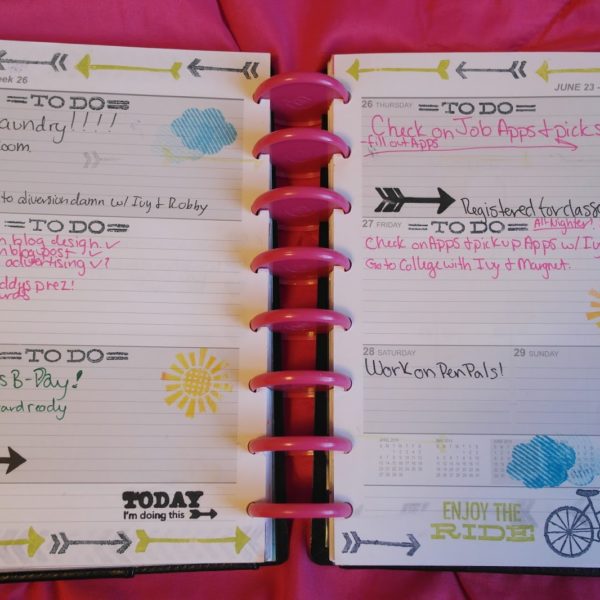 eek 26
TO DO
aundry!!!!
oom.
to diversion damn w/ Ivy & Robby
TO DO
n blog design. ✓
n blog post ✓
advertising ✓?
ddys prez!
ards
TO DO
s B-Day!
ard ready
TODAY
I'm doing this
JUNE 23 -
26 THURSDAY
TO DO
Check on Job Apps & pick
fill out Apps
Registered for classe
27 FRIDAY
TO DO
All Nighter!
Check on Apps & pick up Apps w/ Ivy
Go to College with Ivy & Margret.
28 SATURDAY
29 SUNDAY
Work on Pen Pals!
ENJOY THE
RIDE